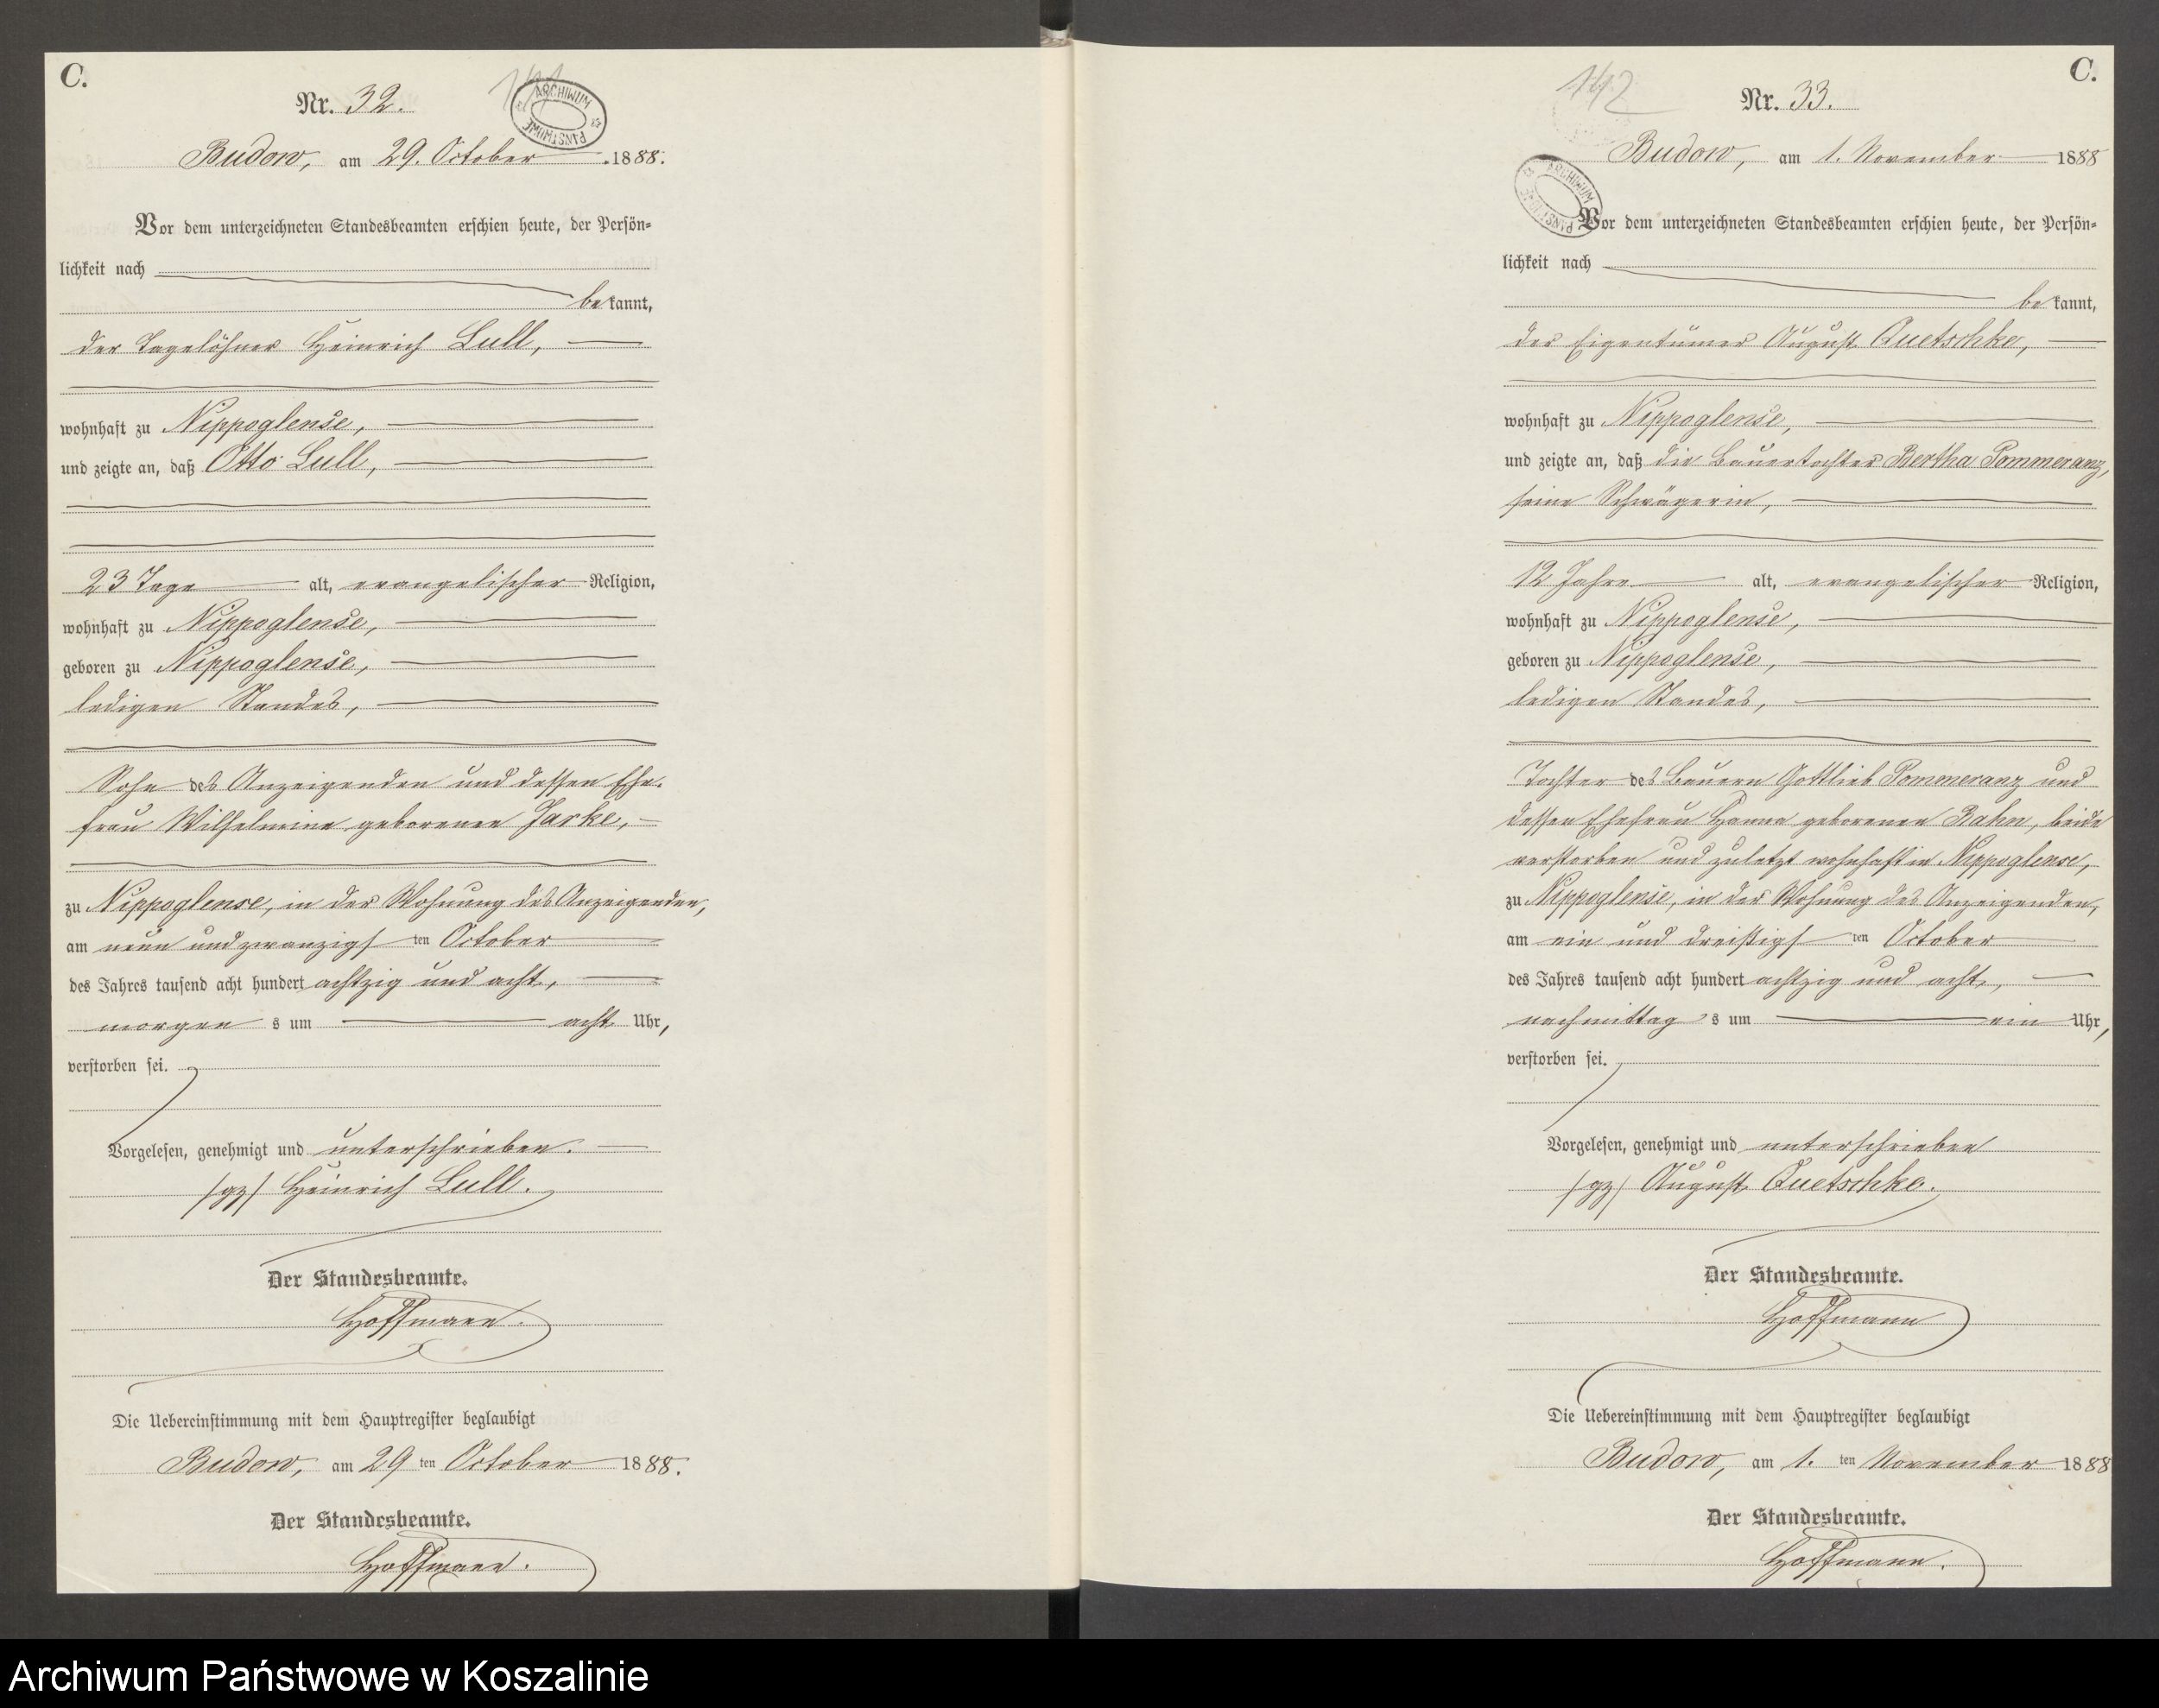 C.
Nr. 32.
141
ARCHIWUM PAŃSTWOWE
Budow, am 29. October 1888.
Vor dem unterzeichneten Standesbeamten erschien heute, der Persön-
lichkeit nach
bekannt,
der Tagelöhner Heinrich Lull,
wohnhaft zu Nippoglense,
und zeigte an, daß Otto Lull,
23 Tage alt, evangelischer Religion,
wohnhaft zu Nippoglense,
geboren zu Nippoglense,
ledigen Standes,
Sohn des Anzeigenden und dessen Ehe-
frau Wilhelmine geborenen Jarke,
zu Nippoglense, in der Wohnung des Anzeigenden,
am neun und zwanzigsten October
des Jahres tausend acht hundert achtzig und acht,
morgens um acht Uhr,
verstorben sei.
Vorgelesen, genehmigt und unterschrieben.
/gz/ Heinrich Lull.
Der Standesbeamte.
Hoffmann.
Die Uebereinstimmung mit dem Hauptregister beglaubigt
Budow, am 29 ten October 1888.
Der Standesbeamte.
Hoffmann.
C.
142
Nr. 33.
Budow, am 1. November 1888
ARCHIWUM PAŃSTWOWE
Vor dem unterzeichneten Standesbeamten erschien heute, der Persön-
lichkeit nach
bekannt,
der Eigentümer August Quetschke,
wohnhaft zu Nippoglense,
und zeigte an, daß die Bauertochter Bertha Pommeranz,
seine Schwägerin,
12 Jahre alt, evangelischer Religion,
wohnhaft zu Nippoglense,
geboren zu Nippoglense,
ledigen Standes,
Tochter des Bauern Gottlieb Pommeranz und
dessen Ehefrau Hanna geborenen Rahn, beide
verstorben und zuletzt wohnhaft in Nippoglense,
zu Nippoglense, in der Wohnung des Anzeigenden,
am ein und dreißigsten October
des Jahres tausend acht hundert achtzig und acht,
nachmittags um ein Uhr,
verstorben sei.
Vorgelesen, genehmigt und unterschrieben
/gz/ August Quetschke.
Der Standesbeamte.
Hoffmann
Die Uebereinstimmung mit dem Hauptregister beglaubigt
Budow, am 1. ten November 1888
Der Standesbeamte.
Hoffmann.
Archiwum Państwowe w Koszalinie